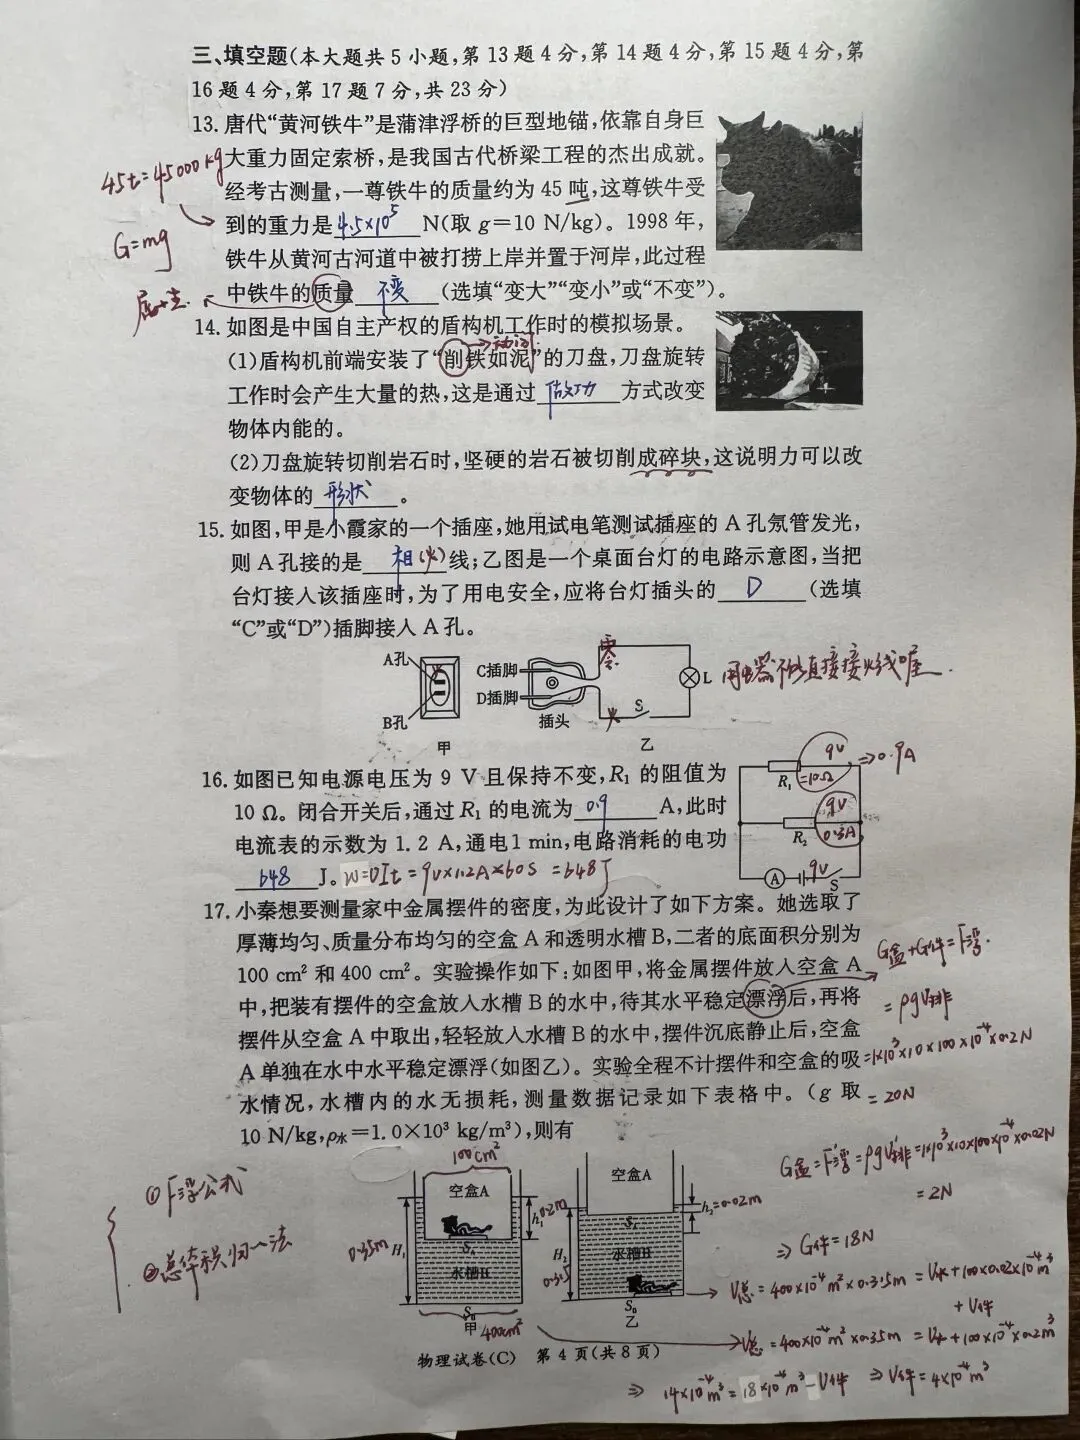 三、填空题(本大题共5小题,第13题4分,第14题4分,第15题4分,第
16题4分,第17题7分,共23分)
13.唐代“黄河铁牛”是蒲津浮桥的巨型地锚,依靠自身巨
45t=45000kg
大重力固定索桥,是我国古代桥梁工程的杰出成就。
经考古测量,一尊铁牛的质量约为45吨,这尊铁牛受
到的重力是 4.5×10⁵ N(取g=10 N/kg)。1998年,
G=mg
铁牛从黄河古河道中被打捞上岸并置于河岸,此过程
中铁牛的质量 不变 (选填“变大”“变小”或“不变”)。
14.如图是中国自主产权的盾构机工作时的模拟场景。
(1)盾构机前端安装了“削铁如泥”的刀盘,刀盘旋转
工作时会产生大量的热,这是通过 做功 方式改变
物体内能的。
(2)刀盘旋转切削岩石时,坚硬的岩石被切削成碎块,这说明力可以改
变物体的 形状 。
15.如图,甲是小霞家的一个插座,她用试电笔测试插座的A孔氖管发光,
则A孔接的是 相(火) 线;乙图是一个桌面台灯的电路示意图,当把
台灯接入该插座时,为了用电安全,应将台灯插头的 D (选填
“C”或“D”)插脚接入A孔。
A孔
B孔
甲
C插脚
D插脚
插头
零
火
S
L
乙
用电器不能直接接火线喔
16.如图已知电源电压为9 V且保持不变,R₁的阻值为
10 Ω。闭合开关后,通过R₁的电流为 0.9 A,此时
电流表的示数为1.2 A,通电1 min,电路消耗的电功
648 J。W=UIt=9V×1.2A×60S=648J
9V
⇒0.9A
R₁=10Ω
9V
R₂
0.3A
A
9V
S
17.小秦想要测量家中金属摆件的密度,为此设计了如下方案。她选取了
厚薄均匀、质量分布均匀的空盒A和透明水槽B,二者的底面积分别为
100 cm²和400 cm²。实验操作如下:如图甲,将金属摆件放入空盒A
中,把装有摆件的空盒放入水槽B的水中,待其水平稳定漂浮后,再将
摆件从空盒A中取出,轻轻放入水槽B的水中,摆件沉底静止后,空盒
A单独在水中水平稳定漂浮(如图乙)。实验全程不计摆件和空盒的吸
水情况,水槽内的水无损耗,测量数据记录如下表格中。(g取
10 N/kg,ρ水=1.0×10³ kg/m³),则有
G盒+G件=F浮
=ρgV排
=1×10³×10×100×10⁻⁴×0.2N
=20N
G盒=F浮'=ρgV排'=1×10³×10×100×10⁻⁴×0.02N
=2N
⇒G件=18N
V总=400×10⁻⁴m²×0.315m=V水+100×0.02×10⁻⁴m³
+V件
V总=400×10⁻⁴m²×0.35m=V水+100×10⁻⁴×0.2m³
⇒14×10⁻⁴m³=18×10⁻⁴m³-V件 ⇒V件=4×10⁻⁴m³
①F浮公式
②总体积归一法
100cm²
空盒A
h₁
0.2m
0.35m
H₁
水槽B
甲
400cm²
空盒A
h₂=0.02m
H₂
0.315
水槽B
乙
物理试卷(C) 第4页(共8页)